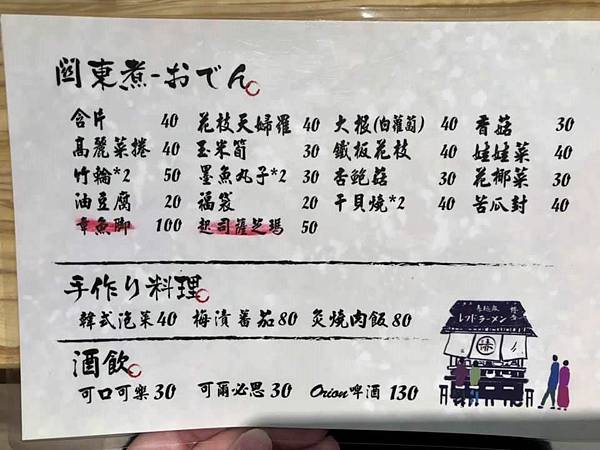 關東煮-おでん
含片 40 花枝天婦羅 40 大根(白蘿蔔) 40 香菇 30
高麗菜捲 40 玉米筍 30 鐵板花枝 40 娃娃菜 40
竹輪*2 50 墨魚丸子*2 30 杏鮑菇 30 花椰菜 30
油豆腐 20 福袋 20 干貝燒*2 40 苦瓜封 40
章魚脚 100 起司薩芝瑪 50
手作り料理
韓式泡菜 40 梅漬蕃茄 80 炙燒肉飯 80
酒飲
可口可樂 30 可爾必思 30 Orion啤酒 130
レッドラーメン